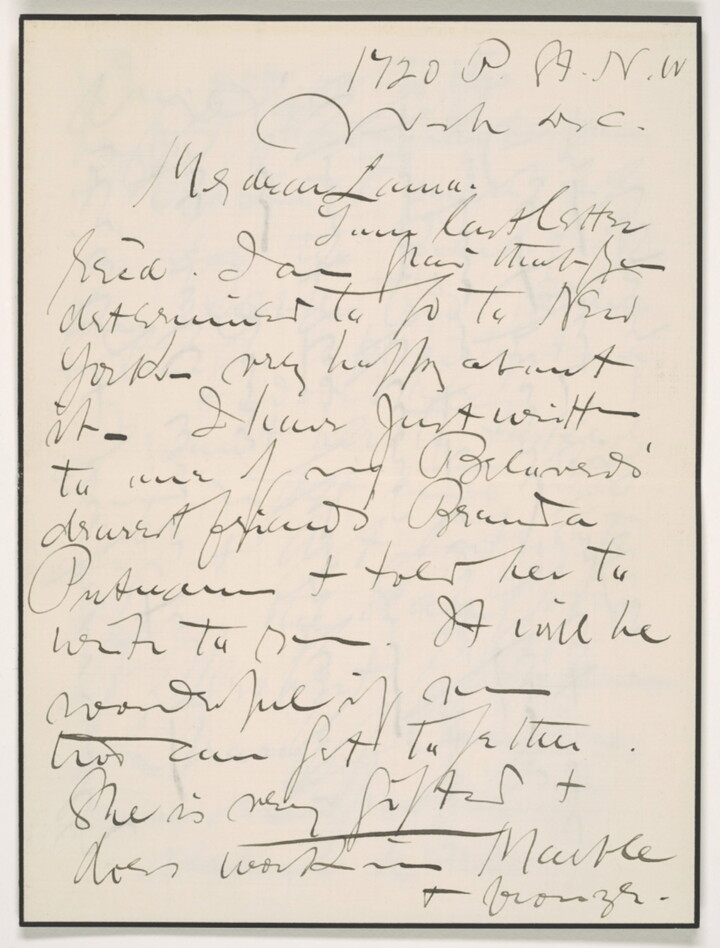 1720 P. St. N.W
Wash D.C.
My dear Laura.
Your last letter
recd. I am glad that you
determined to go to New
York – very happy about
it – I have just written
to one of my Beloved's
dearest friends Brenda
Putnam + told her to
write to you. It will be
wonderful if you
two can get together.
She is very gifted +
does work in Marble
+ bronze.